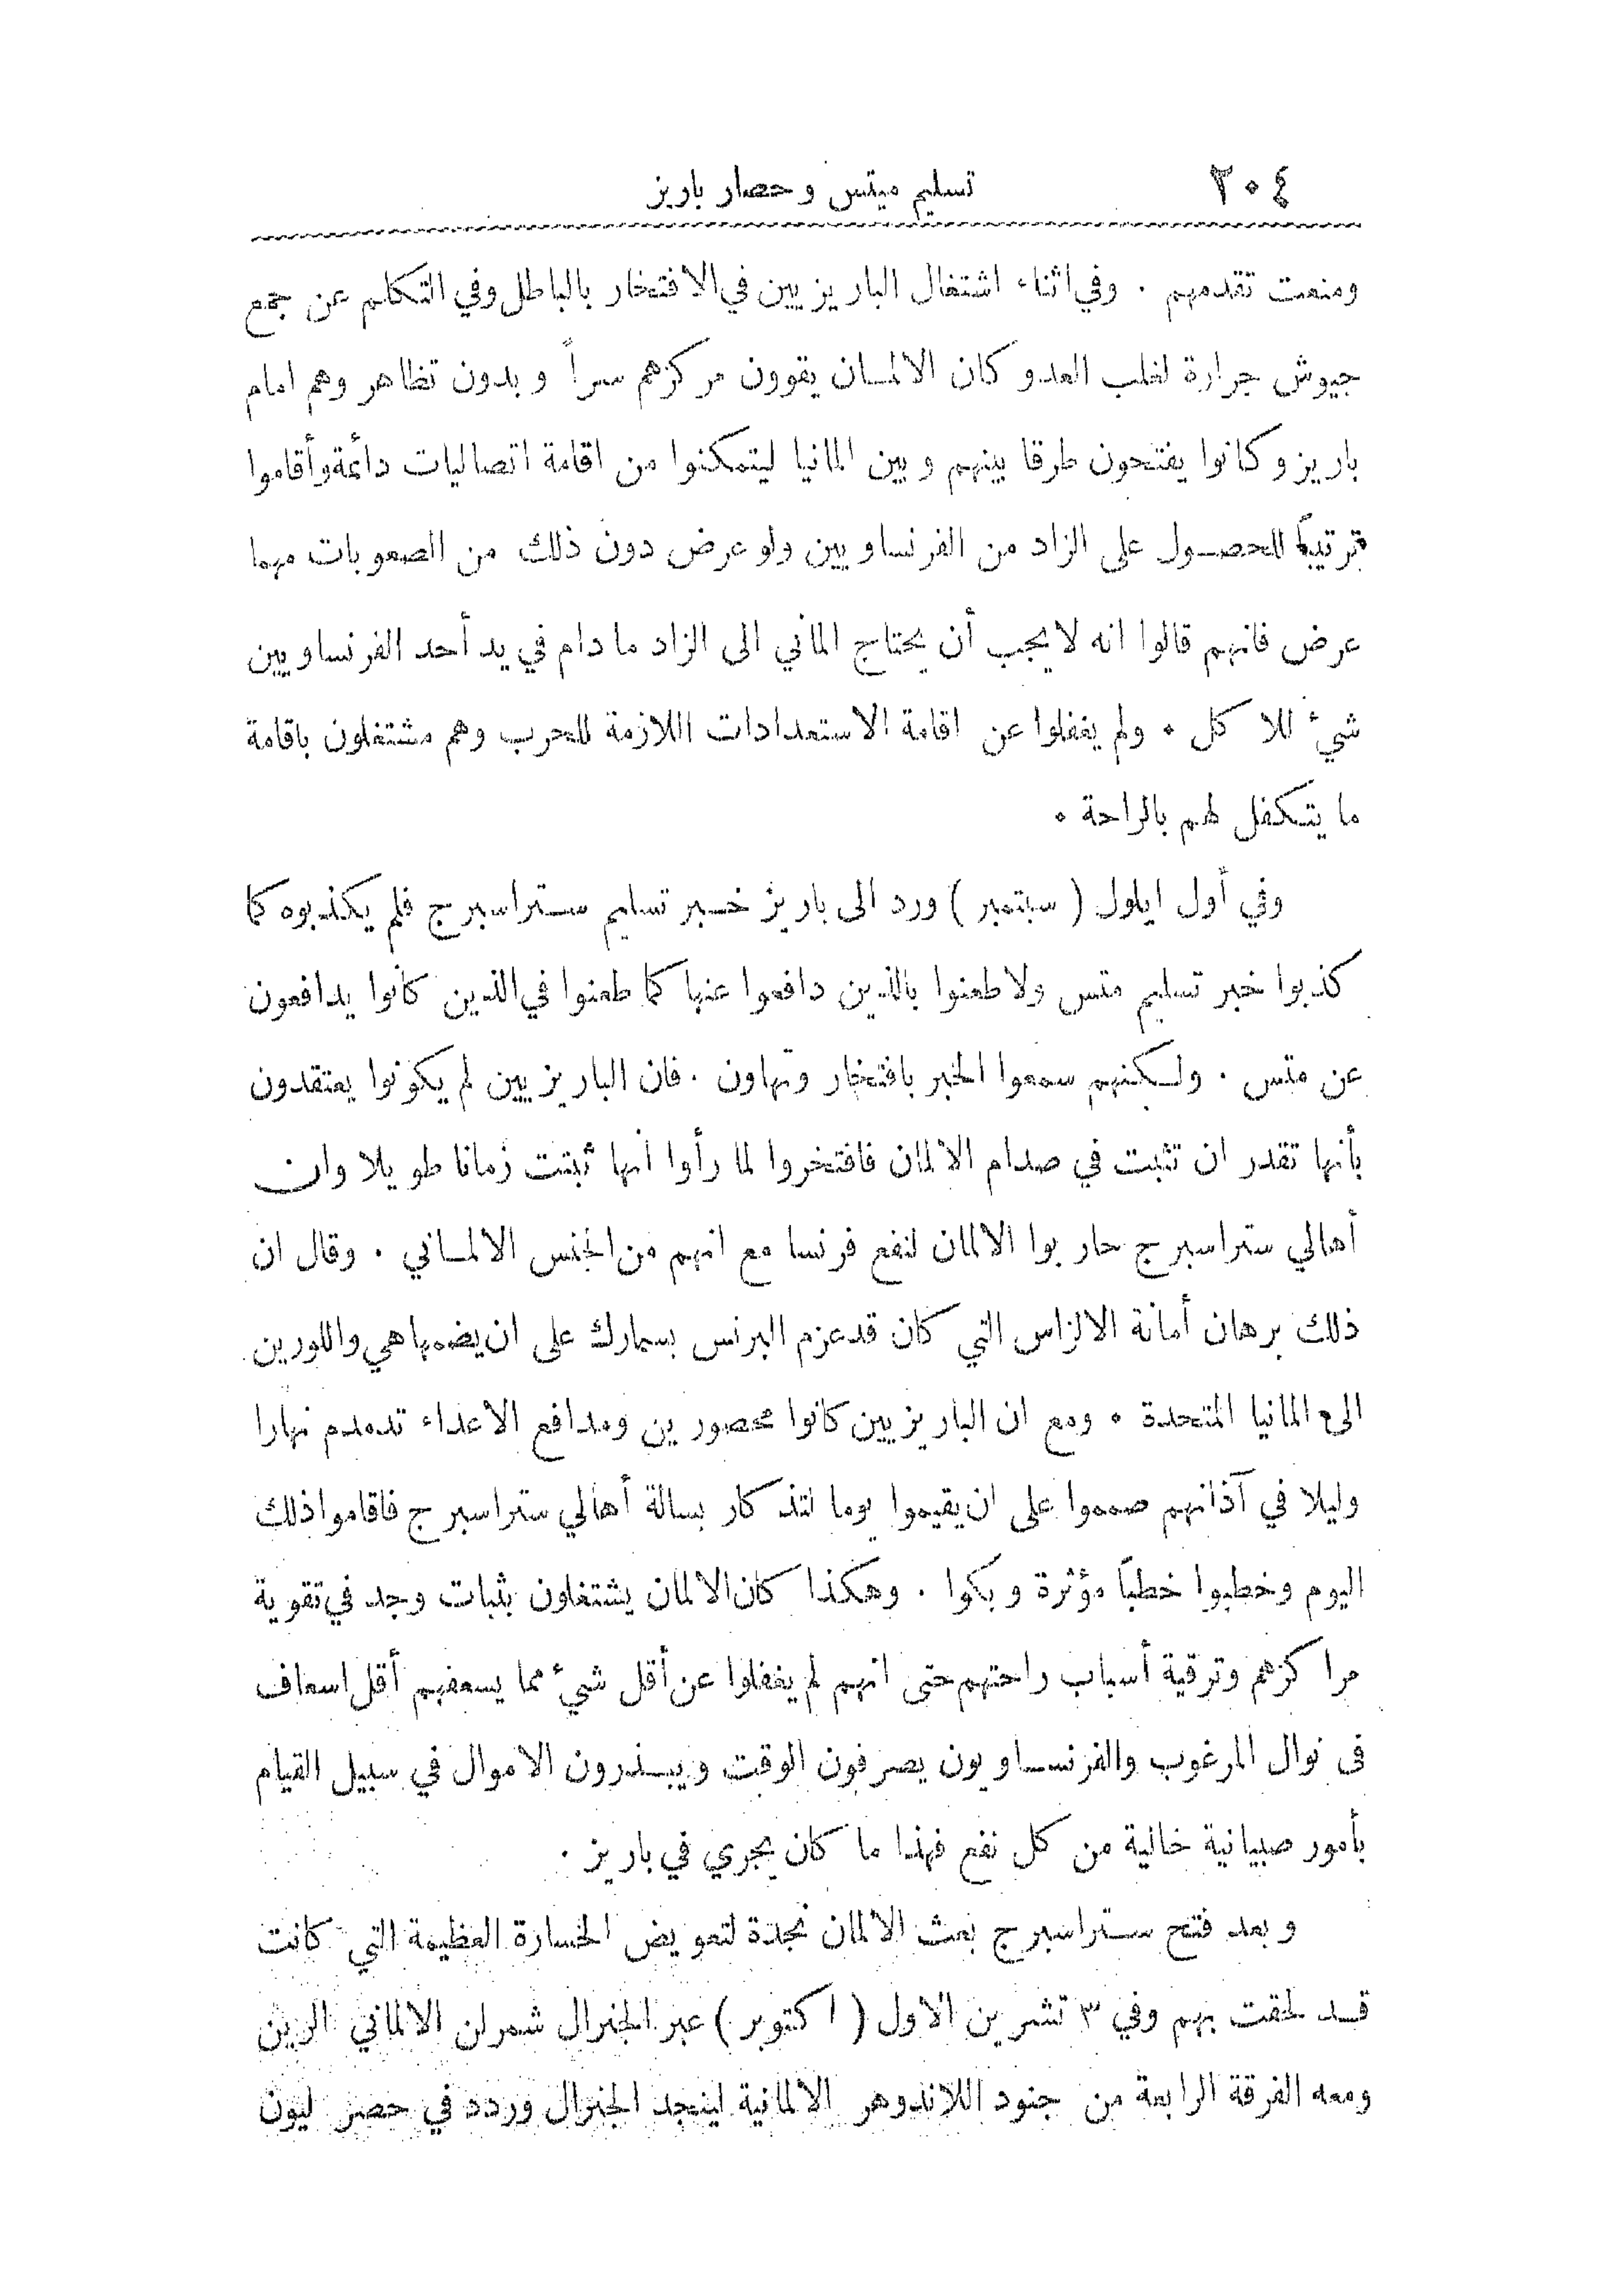 ٢٠٤ تسليم ميتس وحصار باريز
ومنعت تقدمهم . وفي اثناء اشتغال الباريزيين في الافتخار بالباطل وفي التكلم عن جمع
جيوش جرارة لغلب العدو كان الالمان يقوون مركزهم سراً وبدون تظاهر وهم امام
باريز وكانوا يفتحون طرقا بينهم وبين المانيا ليتمكنوا من اقامة اتصاليات دائمة وأقاموا
ترتيباً للحصول على الزاد من الفرنساويين ولو عرض دون ذلك من الصعوبات مهما
عرض فانهم قالوا انه لا يجب أن يحتاج الماني الى الزاد ما دام في يد أحد الفرنساويين
شيء للاكل . ولم يغفلوا عن اقامة الاستعدادات اللازمة للحرب وهم مشتغلون باقامة
ما يتكفل لهم بالراحة .
وفي أول ايلول ( سبتمبر ) ورد الى باريز خبر تسليم ستراسبرج فلم يكذبوه كما
كذبوا خبر تسليم متس ولا طعنوا بالذين دافعوا عنها كما طعنوا في الذين كانوا يدافعون
عن متس . ولكنهم سمعوا الخبر بافتخار وتهاون . فان الباريزيين لم يكونوا يعتقدون
بأنها تقدر ان تثبت في صدام الالمان فافتخروا لما رأوا انها ثبتت زمانا طويلا وان
أهالي ستراسبرج حاربوا الالمان لنفع فرنسا مع انهم من الجنس الالماني . وقال ان
ذلك برهان أمانة الالزاس التي كان قد عزم البرنس بسمارك على ان يضمها هي واللورين
الى المانيا المتحدة . ومع ان الباريزيين كانوا محصورين ومدافع الاعداء تدمدم نهارا
وليلا في آذانهم صمموا على ان يقيموا يوما لتذكار بسالة أهالي ستراسبرج فاقاموا ذلك
اليوم وخطبوا خطباً مؤثرة وبكوا . وهكذا كان الالمان يشتغلون بثبات وجد في تقوية
مراكزهم وترقية أسباب راحتهم حتى انهم لم يغفلوا عن أقل شيء مما يسعفهم أقل اسعاف
في نوال المرغوب والفرنساويون يصرفون الوقت ويبذرون الاموال في سبيل القيام
بأمور صبيانية خالية من كل نفع فهذا ما كان يجري في باريز .
وبعد فتح ستراسبرج بعث الالمان نجدة لتعويض الخسارة العظيمة التي كانت
قد لحقت بهم وفي ٣ تشرين الاول ( اكتوبر ) عبر الجنرال شمرلن الالماني الرين
ومعه الفرقة الرابعة من جنود اللاندوهر الالمانية لينجد الجنرال وردد في حصر ليون